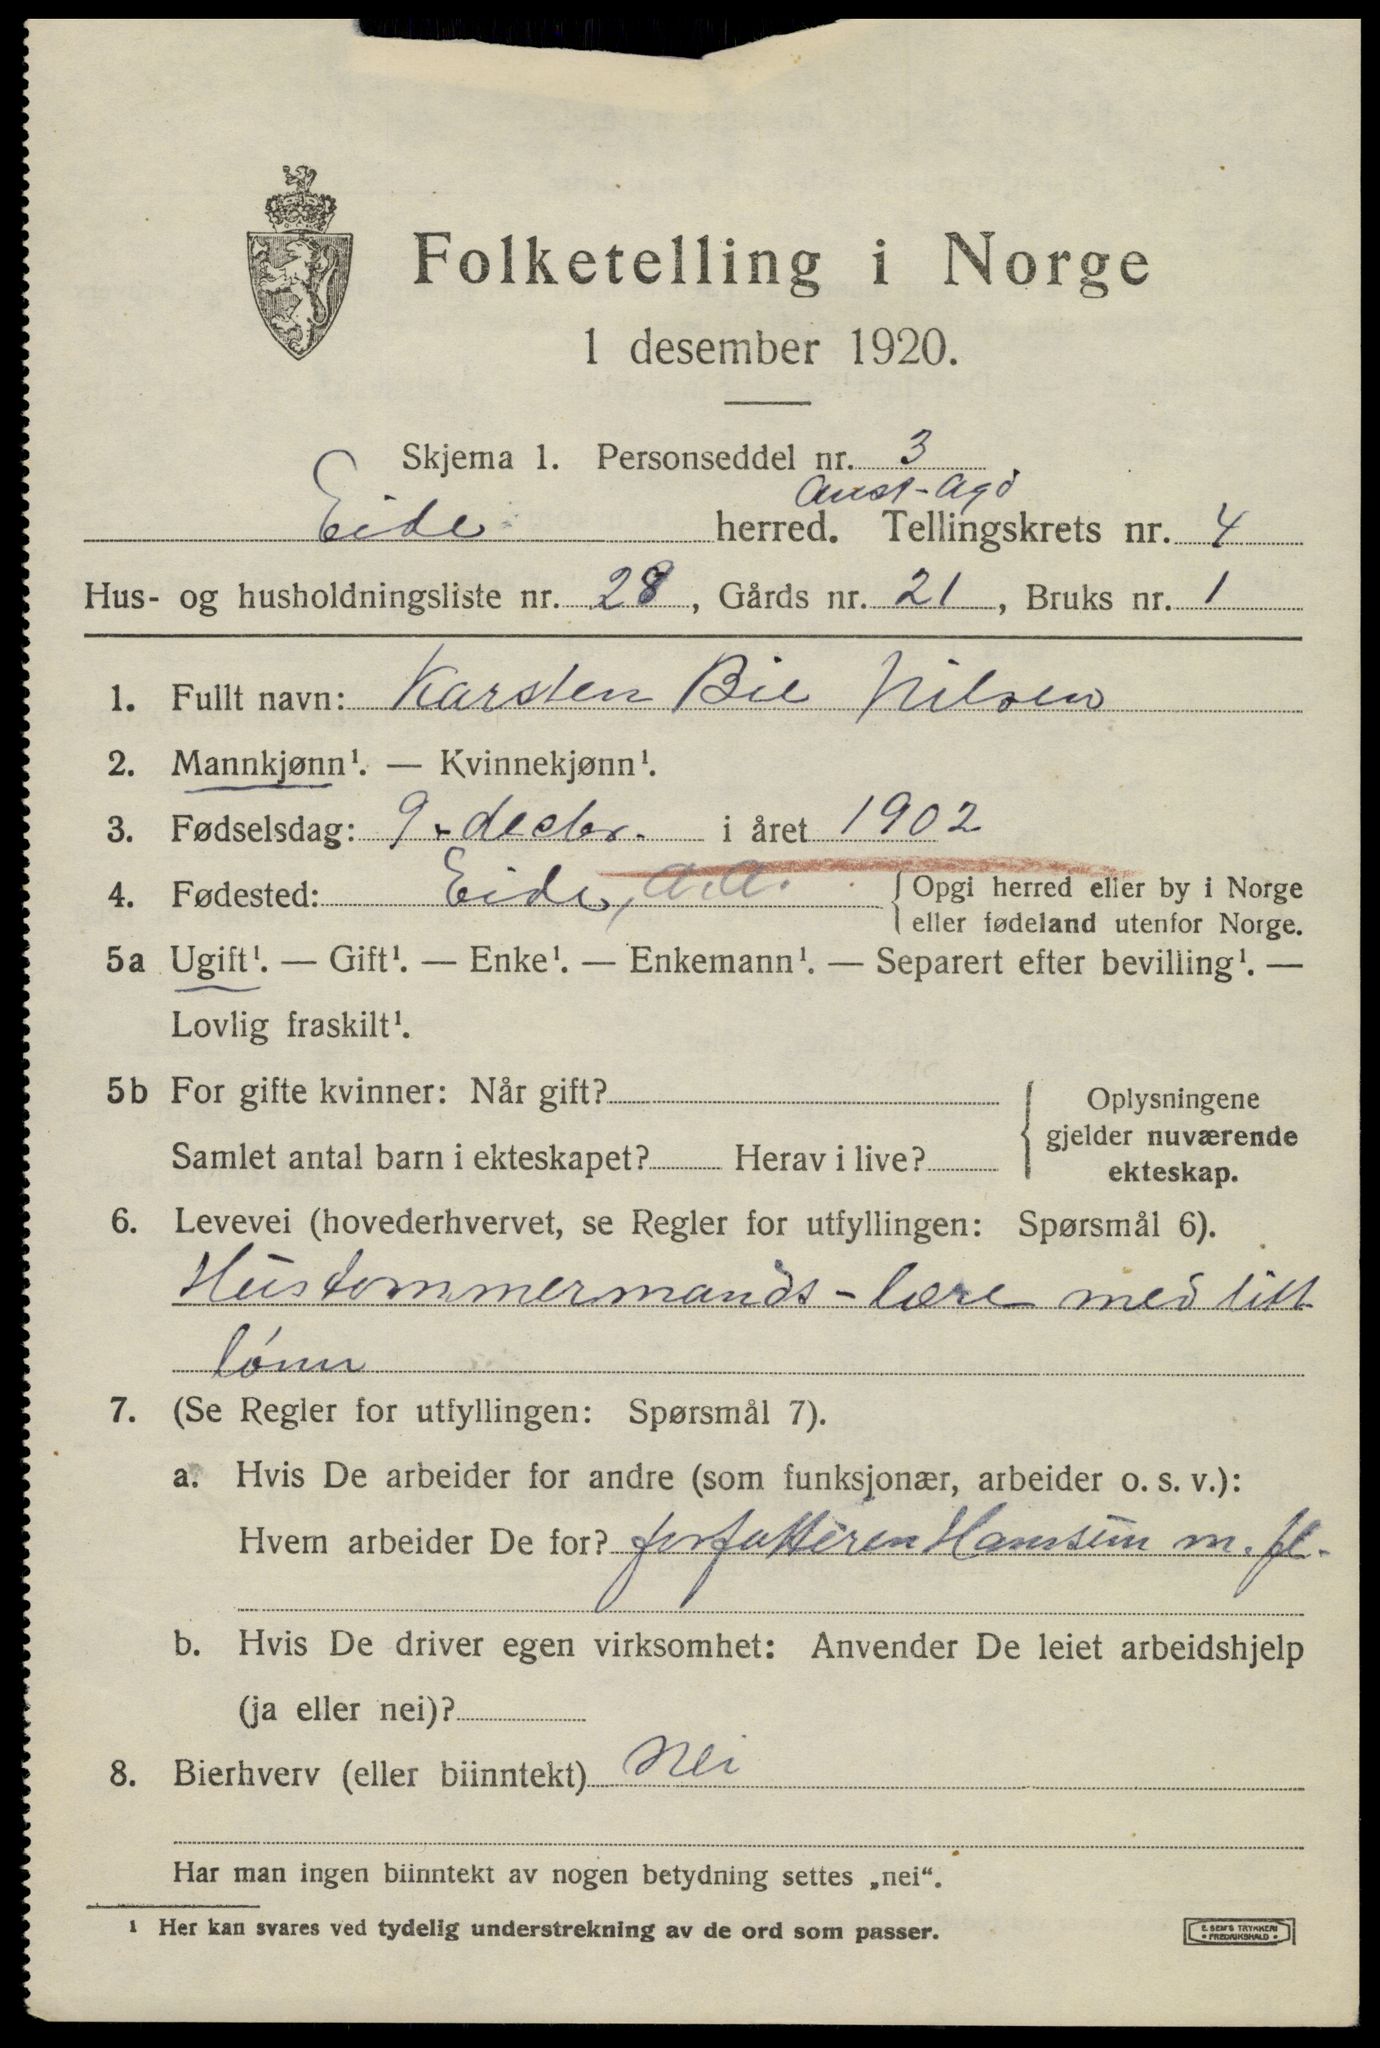 Folketelling i Norge
1 desember 1920.
Skjema 1. Personseddel nr. 3
Aust-Agd
Eide herred. Tellingskrets nr. 4
Hus- og husholdningsliste nr. 28, Gårds nr. 21, Bruks nr. 1
1. Fullt navn: Karsten Bie Nilsen
2. Mannkjønn¹. — Kvinnekjønn¹.
3. Fødselsdag: 9. decbr. i året 1902
4. Fødested: Eide, A.A. { Opgi herred eller by i Norge
eller fødeland utenfor Norge.
5a Ugift¹. — Gift¹. — Enke¹. — Enkemann¹. — Separert efter bevilling¹. —
Lovlig fraskilt¹.
5b For gifte kvinner: Når gift?
Samlet antal barn i ekteskapet? Herav i live?
{ Oplysningene
gjelder nuværende
ekteskap.
6. Levevei (hovederhvervet, se Regler for utfyllingen: Spørsmål 6).
Hustømmermands-lære med litt
lønn
7. (Se Regler for utfyllingen: Spørsmål 7).
a. Hvis De arbeider for andre (som funksjonær, arbeider o. s. v.):
Hvem arbeider De for? forfatteren Hamsun m. fl.
b. Hvis De driver egen virksomhet: Anvender De leiet arbeidshjelp
(ja eller nei)?
8. Bierhverv (eller biinntekt) Nei
Har man ingen biinntekt av nogen betydning settes „nei“.
¹ Her kan svares ved tydelig understrekning av de ord som passer.
E. SEM'S TRYKKERI
• FREDRIKSHALD •